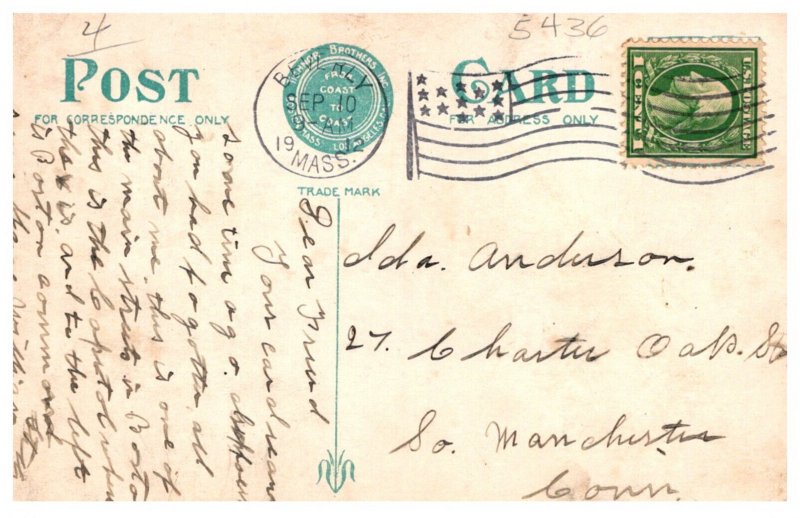 4
5436
POST CARD
FOR CORRESPONDENCE ONLY
FOR ADDRESS ONLY
BROTHERS INC.
FROM
COAST
TO
COAST
LOS ANGELES
TRADE MARK
BEVERLY
SEP 10
AM
19 2
MASS.
U.S. POSTAGE
Dear Friend
Your card
some time ago.
you had forgotten all
about me, this is one of
the main streets in Boston
this is the Capitol where
the is. and to the left
is Boston common
Ida. Anderson.
27. Charter Oak. St
So. Manchester
Conn.